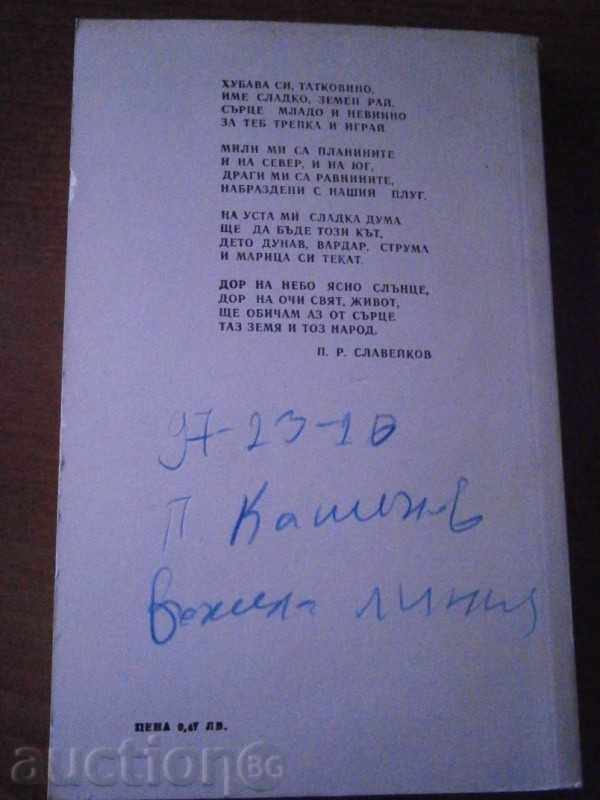 ХУБАВА СИ, ТАТКОВИНО,
ИМЕ СЛАДКО, ЗЕМЕН РАЙ,
СЪРЦЕ МЛАДО И НЕВИННО
ЗА ТЕБ ТРЕПКА И ИГРАЙ.
МИЛИ МИ СА ПЛАНИНИТЕ
И НА СЕВЕР, И НА ЮГ,
ДРАГИ МИ СА РАВНИНИТЕ,
НАБРАЗДЕНИ С НАШИЯ ПЛУГ.
НА УСТА МИ СЛАДКА ДУМА
ЩЕ ДА БЪДЕ ТОЗИ КЪТ,
ДЕТО ДУНАВ, ВАРДАР, СТРУМА
И МАРИЦА СИ ТЕКАТ.
ДОР НА НЕБО ЯСНО СЛЪНЦЕ,
ДОР НА ОЧИ СВЯТ, ЖИВОТ,
ЩЕ ОБИЧАМ АЗ ОТ СЪРЦЕ
ТАЗ ЗЕМЯ И ТОЗ НАРОД.
П. Р. СЛАВЕЙКОВ
97-23-10
П.
линия
ЦЕНА 0,47 ЛВ.
auctionBG